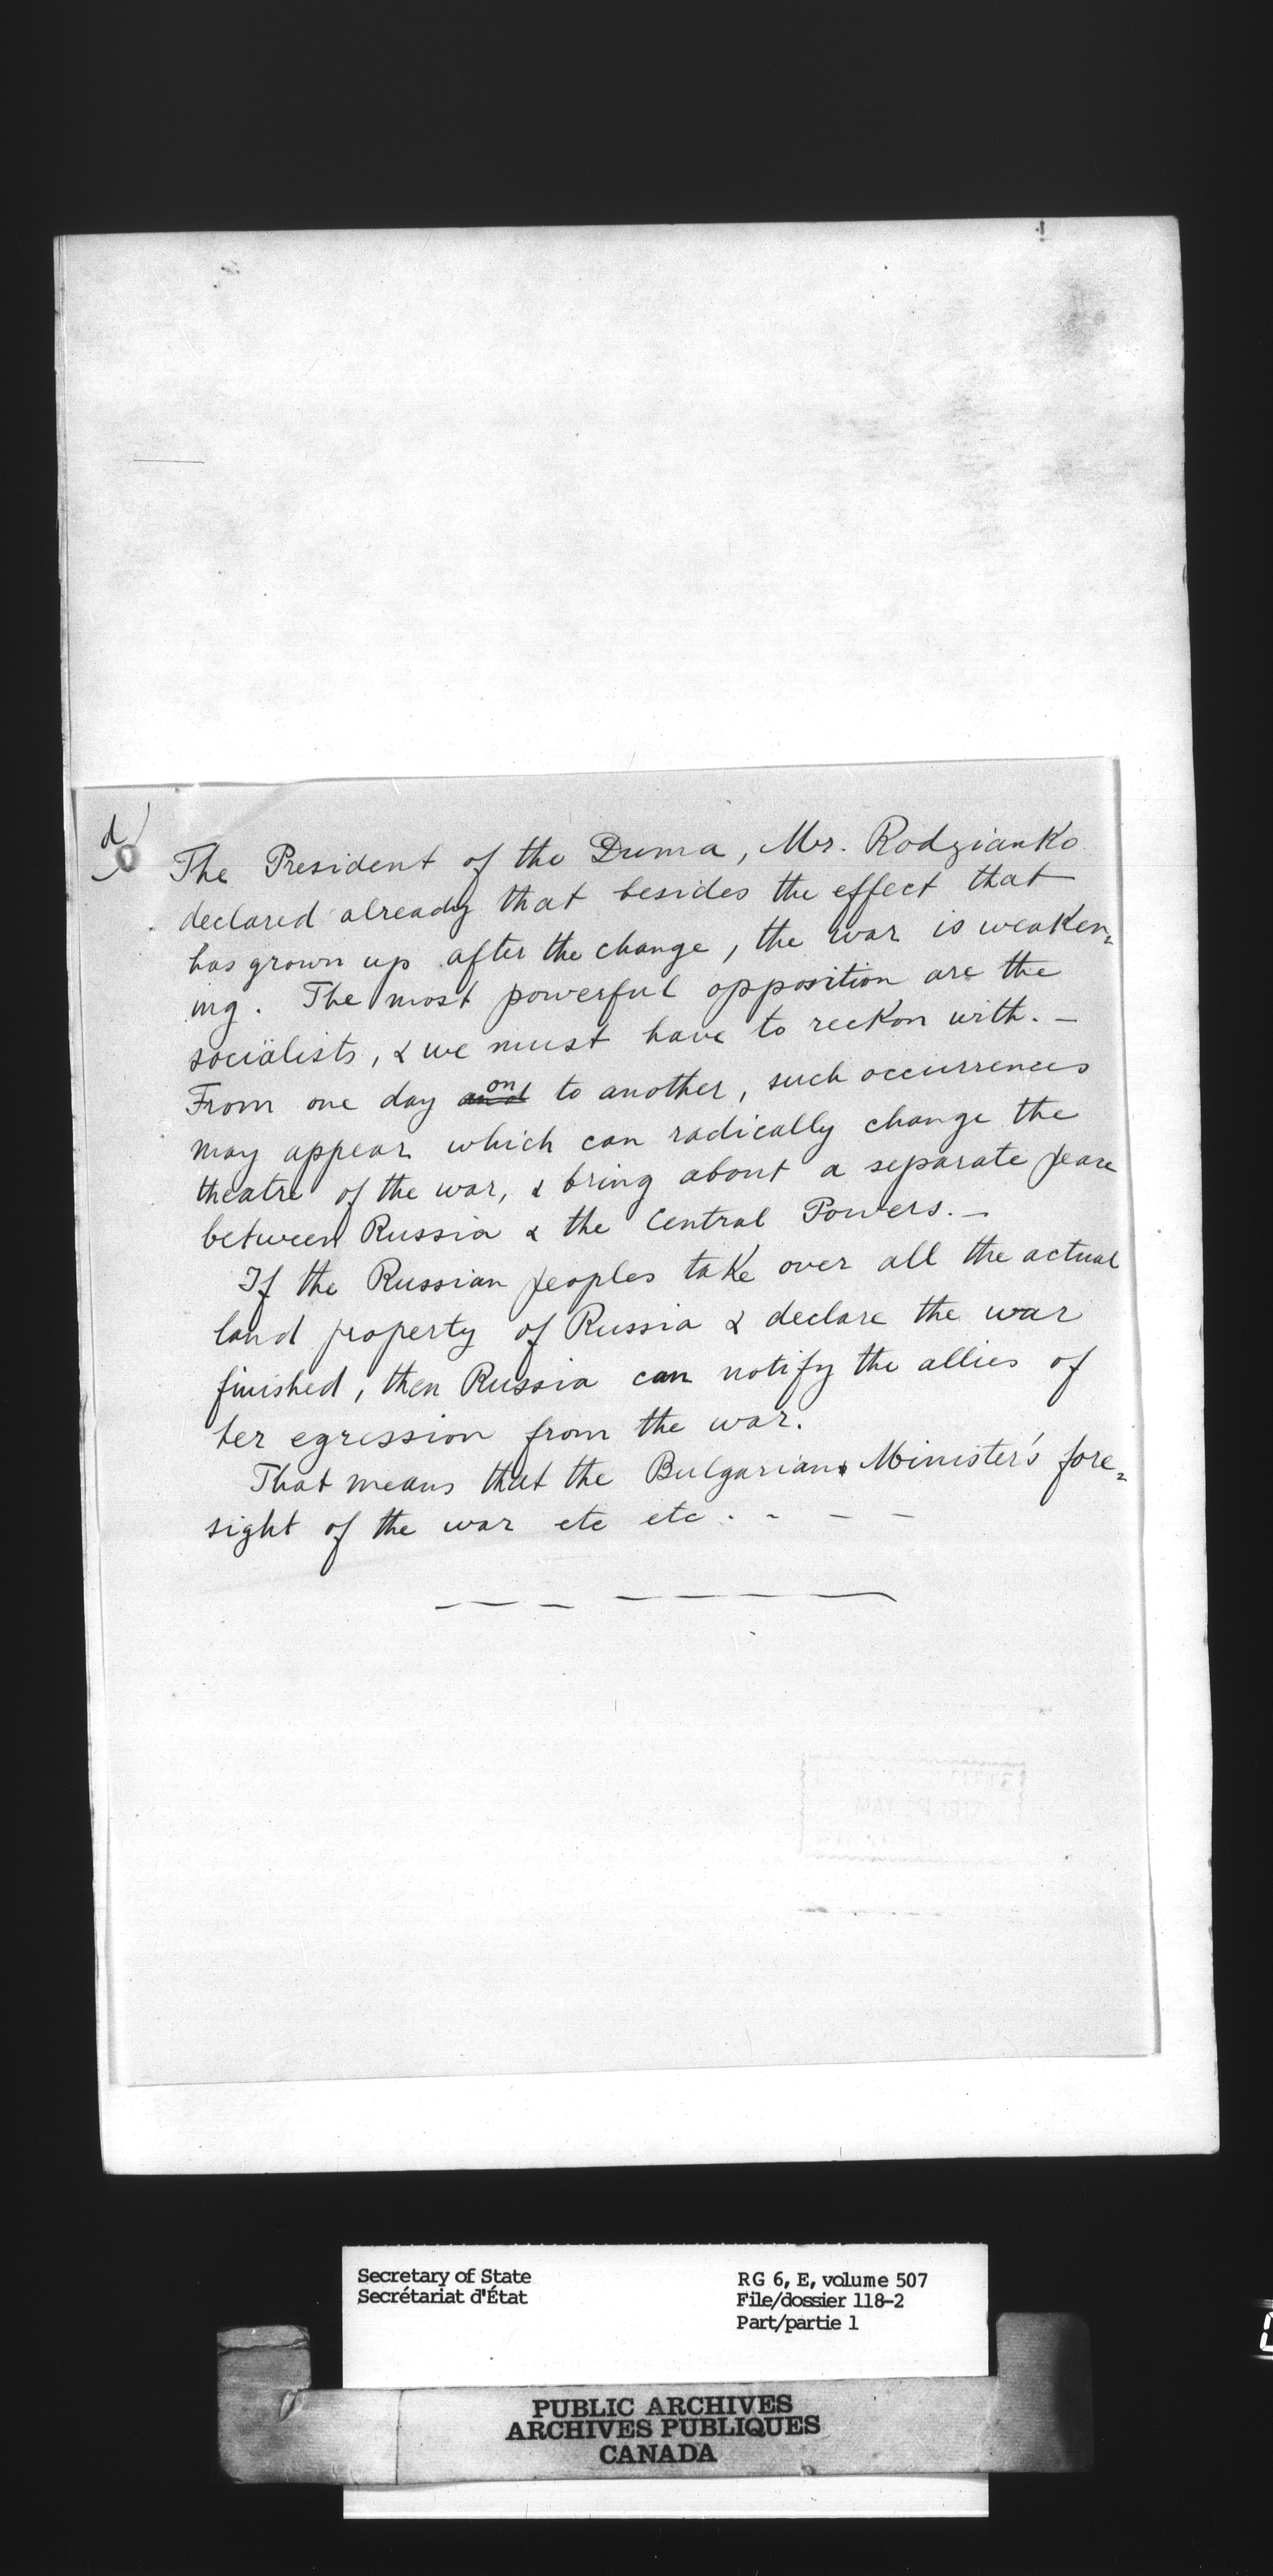 d)
The President of the Duma, Mr. Rodzianko
declared already that besides the effect that
has grown up after the change, the war is weaken=
ing. The most powerful opposition are the
socialists, & we must have to reckon with. —
From one day on to another, such occurrences
may appear which can radically change the
theatre of the war, & bring about a separate peace
between Russia & the Central Powers. —
If the Russian peoples take over all the actual
land property of Russia & declare the war
finished, then Russia can notify the allies of
her egression from the war.
That means that the Bulgarian Minister's fore=
sight of the war etc etc. - — —
Secretary of State
Secrétariat d'État
RG 6, E, volume 507
File/dossier 118-2
Part/partie 1
PUBLIC ARCHIVES
ARCHIVES PUBLIQUES
CANADA